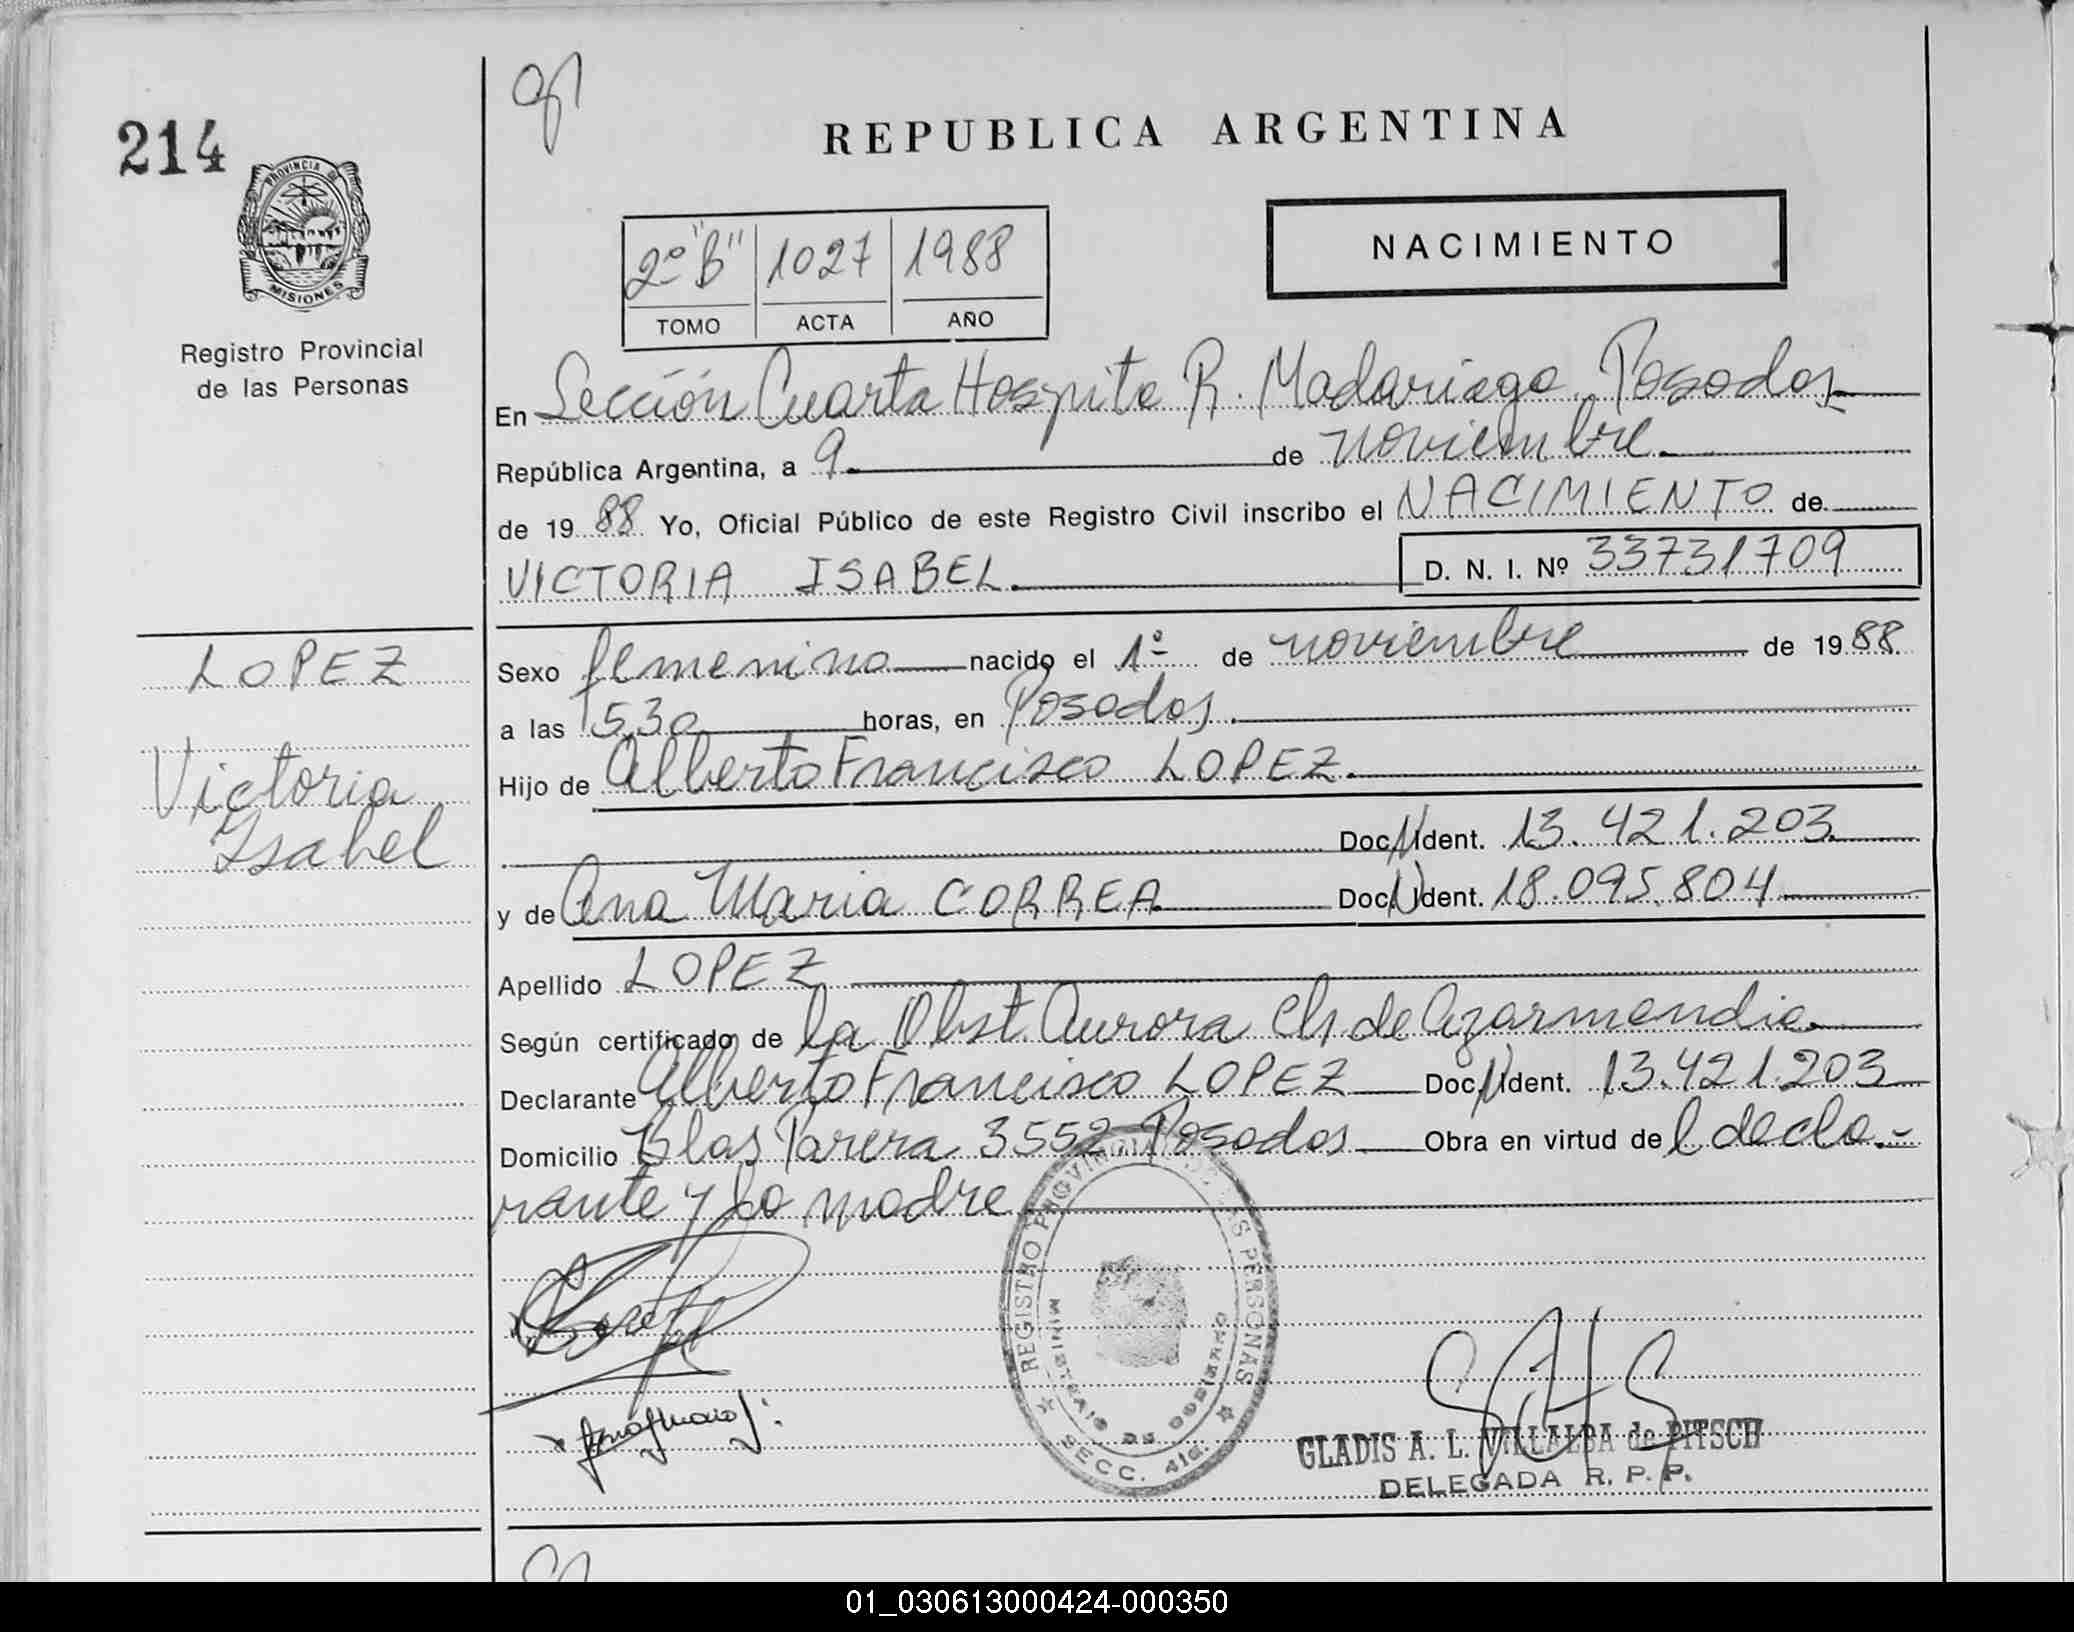 214
REPUBLICA ARGENTINA
PROVINCIA DE
MISIONES
Registro Provincial
de las Personas
2º "B" 1027 1988
TOMO ACTA AÑO
NACIMIENTO
En Sección Cuarta Hospita R. Madariaga Posadas
República Argentina, a 9 de noviembre
de 19 88 Yo, Oficial Público de este Registro Civil inscribo el NACIMIENTO de
VICTORIA ISABEL D. N. I. Nº 33731709
LOPEZ
Victoria
Isabel
Sexo femenino nacido el 1º de noviembre de 19 88
a las 5,30 horas, en Posadas
Hijo de Alberto Francisco LOPEZ
Doc. N Ident. 13.421.203
y de Ana Maria CORREA Doc. N Ident. 18.095.804
Apellido LOPEZ
Según certificado de la Obst. Aurora Ch de Azarmendia
Declarante Alberto Francisco LOPEZ Doc. N Ident. 13.421.203
Domicilio Blas Parera 3552 Posadas Obra en virtud de l decla-
rante y la madre
REGISTRO PROVINCIAL DE LAS PERSONAS
MINISTERIO DE GOBIERNO
SECC. 4ta.
GLADIS A. L. VILLALBA de PITSCH
DELEGADA R. P. P.
01_030613000424-000350